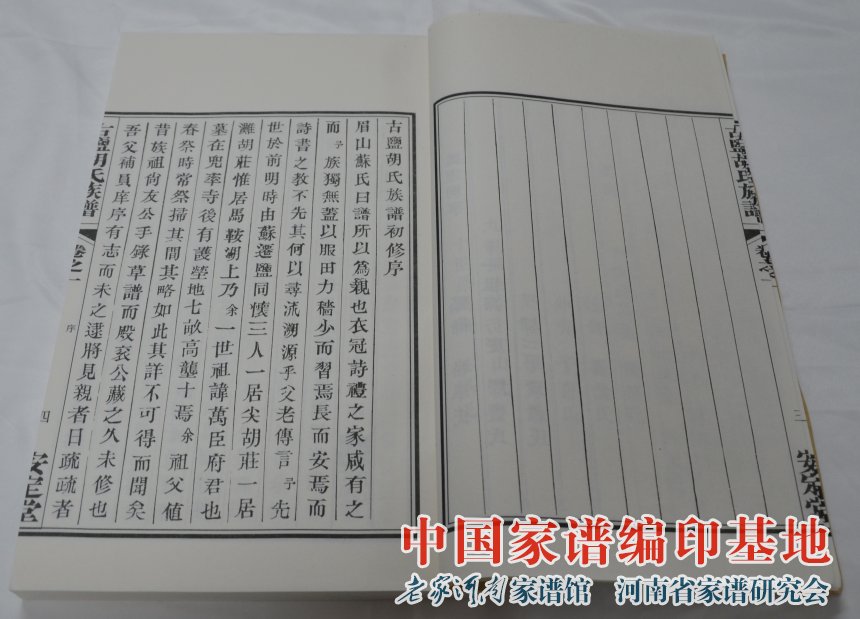 古鹽胡氏族譜初修序
眉山蘇氏曰譜所以為親也衣冠詩禮之家咸有之
而予族獨無蓋以服田力穡少而習焉長而安焉而
詩書之教不先其何以尋流溯源乎父老傳言予先
世於前明時由蘇遷鹽同懷三人一居尖胡莊一居
灘胡莊惟居馬鞍湖上乃余一世祖諱萬臣府君也
墓在兜率寺後有護塋地七畝高壟十焉余祖父值
春祭時常祭掃其間其略如此其詳不可得而聞矣
昔族祖尚友公手錄草譜而殿袞公藏之久未修也
吾父補員庠序有志而未之逮將見親者日疏疏者
古鹽胡氏族譜
卷之一
序
四
安定堂
古鹽胡氏族譜
卷之一
三
安定堂
中国家谱编印基地
老家河南家谱馆 河南省家谱研究会